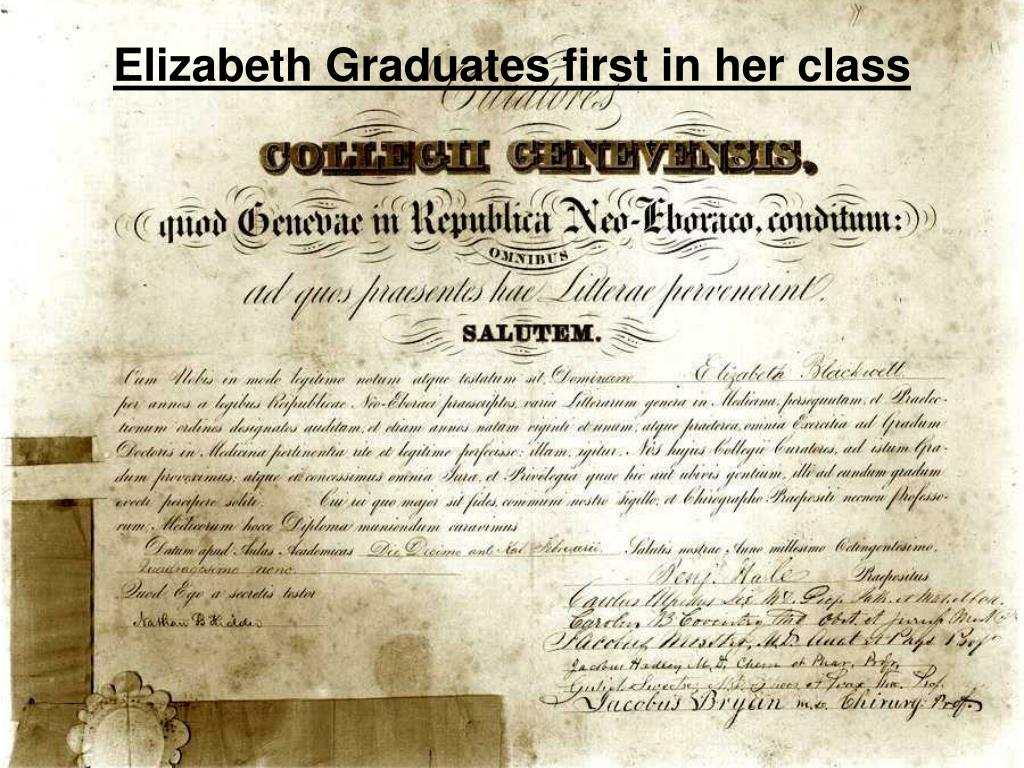 Elizabeth Graduates first in her class
Curatores
COLLEGII GENEVENSIS,
quod Genevae in Republica Neo-Eboraco, conditum:
OMNIBUS
ad quos praesentes hae Litterae pervenerint,
SALUTEM.
Cum Nobis in modo legitimo notum atque testatum sit, Dominam Elizabeth Blackwell
per annos a legibus Reipublicae Neo-Eboraci praescriptos, varia Litterarum genera in Medicina, persequutam, et Praelec-
tionum ordines designatos auditam, et etiam annos natam viginti et unum, atque praeterea, omnia Exercitia ad Gradum
Doctoris in Medicina pertinentia rite et legitime perfecisse: illam, igitur, Nos hujus Collegii Curatores, ad istum Gra-
dum proveximus; atque ei concessimus omnia Jura, et Privilegia quae hic aut ubivis gentium, illi ad eundum gradum
evecti percipere soliti. Cui rei quo major sit fides, communi nostro Sigillo, et Chirographo Praepositi necnon Professo-
rum, Medicorum hocce Diploma muniendum curavimus
Datum apud Aulas Academicas Die Decimo ant Kal Februarii, Salutis nostrae Anno millesimo Octingentesimo,
Quadragesimo nono.
Benj. Hale Praepositus
Quod Ego a secretis testor
Nathan B Kidder
Carolus M.D. Prof.
Jacobus M.D. Prof
Jacobus Hadley M.D. Chem et Phar. Profr.
Prof.
Jacobus Bryan M.D. Chirurg: Prof.